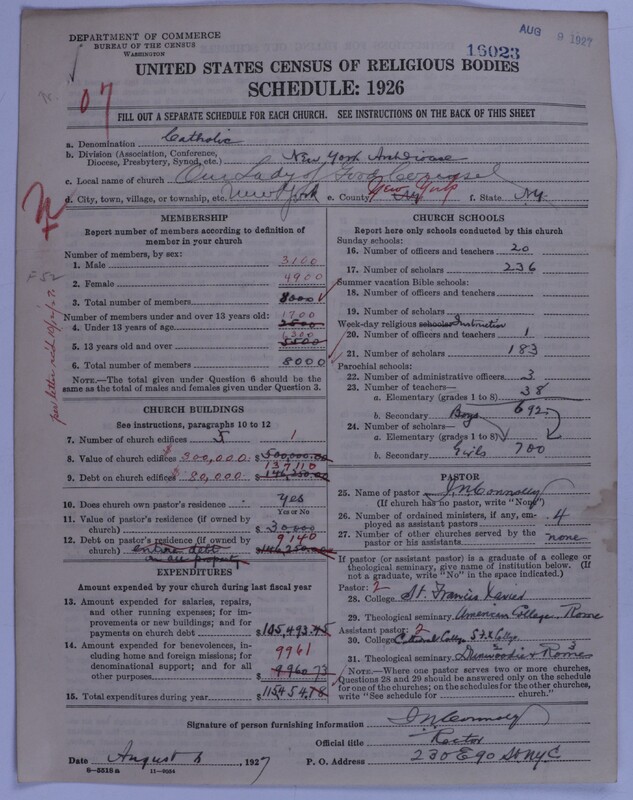 DEPARTMENT OF COMMERCE
BUREAU OF THE CENSUS
WASHINGTON
AUG 9 1927
16023
07
UNITED STATES CENSUS OF RELIGIOUS BODIES
SCHEDULE: 1926
FILL OUT A SEPARATE SCHEDULE FOR EACH CHURCH. SEE INSTRUCTIONS ON THE BACK OF THIS SHEET
a. Denomination Catholic
b. Division (Association, Conference, Diocese, Presbytery, Synod, etc.) New York Archdiocese
c. Local name of church Our Lady of Good Counsel
d. City, town, village, or township, etc. New York e. County New York f. State NY
MEMBERSHIP
Report number of members according to definition of member in your church
Number of members, by sex:
1. Male 3100
2. Female 4900
3. Total number of members 8000
Number of members under and over 13 years old: 1700
4. Under 13 years of age 2500
6300
5. 13 years old and over 5500
6. Total number of members 8000
NOTE.—The total given under Question 6 should be the same as the total of males and females given under Question 3.
CHURCH BUILDINGS
See instructions, paragraphs 10 to 12
7. Number of church edifices 5 1
8. Value of church edifices $300,000. $500,000.00
137,110
9. Debt on church edifices $80,000 $146,250.00
10. Does church own pastor's residence? Yes
Yes or No
11. Value of pastor's residence (if owned by church) $30,000
9140
12. Debt on pastor's residence (if owned by church) entire debt on all property $146,250.00
EXPENDITURES
Amount expended by your church during last fiscal year
13. Amount expended for salaries, repairs, and other running expenses; for improvements or new buildings; and for payments on church debt $105,493.45
14. Amount expended for benevolences, including home and foreign missions; for denominational support; and for all other purposes 9961 $9960.73
15. Total expenditures during year $115454.78
CHURCH SCHOOLS
Report here only schools conducted by this church
Sunday schools:
16. Number of officers and teachers 20
17. Number of scholars 236
Summer vacation Bible schools:
18. Number of officers and teachers
19. Number of scholars
Week-day religious schools: Instruction
20. Number of officers and teachers 1
21. Number of scholars 183
Parochial schools:
22. Number of administrative officers 3
23. Number of teachers—
a. Elementary (grades 1 to 8) 38
b. Secondary Boys 692
24. Number of scholars—
a. Elementary (grades 1 to 8)
b. Secondary Girls 700
PASTOR
25. Name of pastor J. N. Connolly
(If church has no pastor, write "None")
26. Number of ordained ministers, if any, employed as assistant pastors 4
27. Number of other churches served by the pastor or his assistants none
If pastor (or assistant pastor) is a graduate of a college or theological seminary, give name of institution below. (If not a graduate, write "No" in the space indicated.)
Pastor: 2
28. College St. Francis Xavier
29. Theological seminary American College, Rome
Assistant pastor: 2
30. College Cathedral College S F X College
31. Theological seminary Dunwoodie 2 Rome 3
NOTE.—Where one pastor serves two or more churches, Questions 28 and 29 should be answered only on the schedule for one of the churches; on the schedules for the other churches, write "See schedule for church."
Signature of person furnishing information J N Connolly
Official title Rector
Date August 6, 1927 P. O. Address 230 E 90 St NYC
6-5518a 11-9054